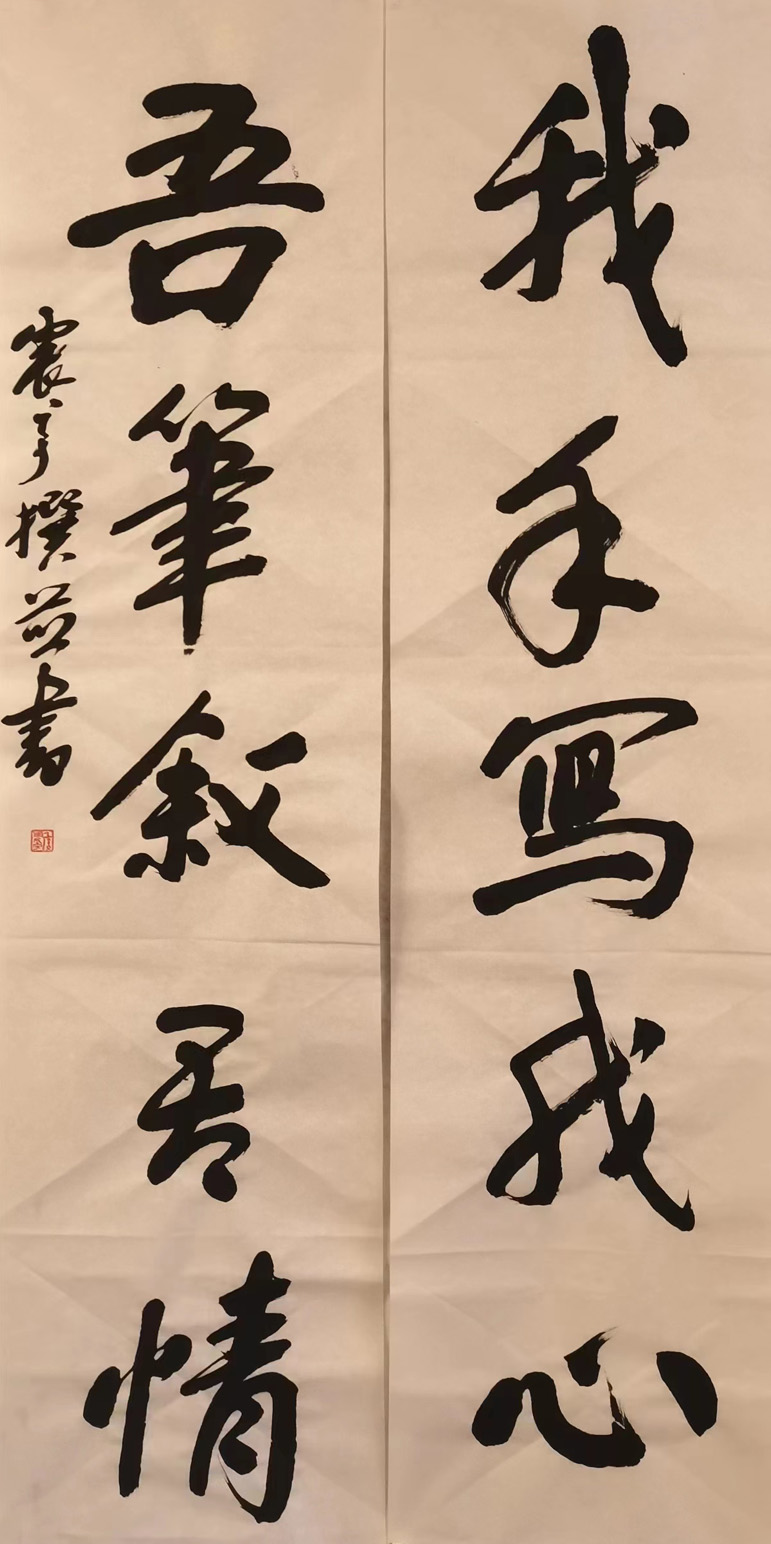 我手寫我心
吾筆敘吾情
撰並書